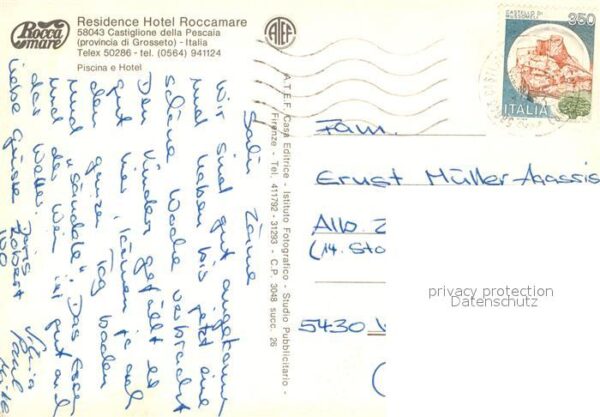 Rocca
mare
Residence Hotel Roccamare
58043 Castiglione della Pescaia
(provincia di Grosseto) - Italia
Telex 50286 - tel. (0564) 941124
Piscina e Hotel
ATEF
CASTELLO DI
MUSSOMELI
350
ITALIA
A.T.E.F. Casa Editrice - Istituto Fotografico - Studio Pubblicitario -
Firenze - Tel. 411792 - 31293 - C.P. 3048 succ. 26
Salü Zäme
Wir sind gut angekommen
und haben bis jetzt eine
schöne Woche verbracht
Den Kindern gefällt es
gut hier, können ja auch
den ganzen Tag baden
und "sändele". Das Essen
und der Wein ist gut auch
das Wetter.
Liebe Grüsse Doris
Robert
Fam.
Ernst Müller-Agassis
Alb. Z
(14. Sto
5430 W
(
privacy protection
Datenschutz